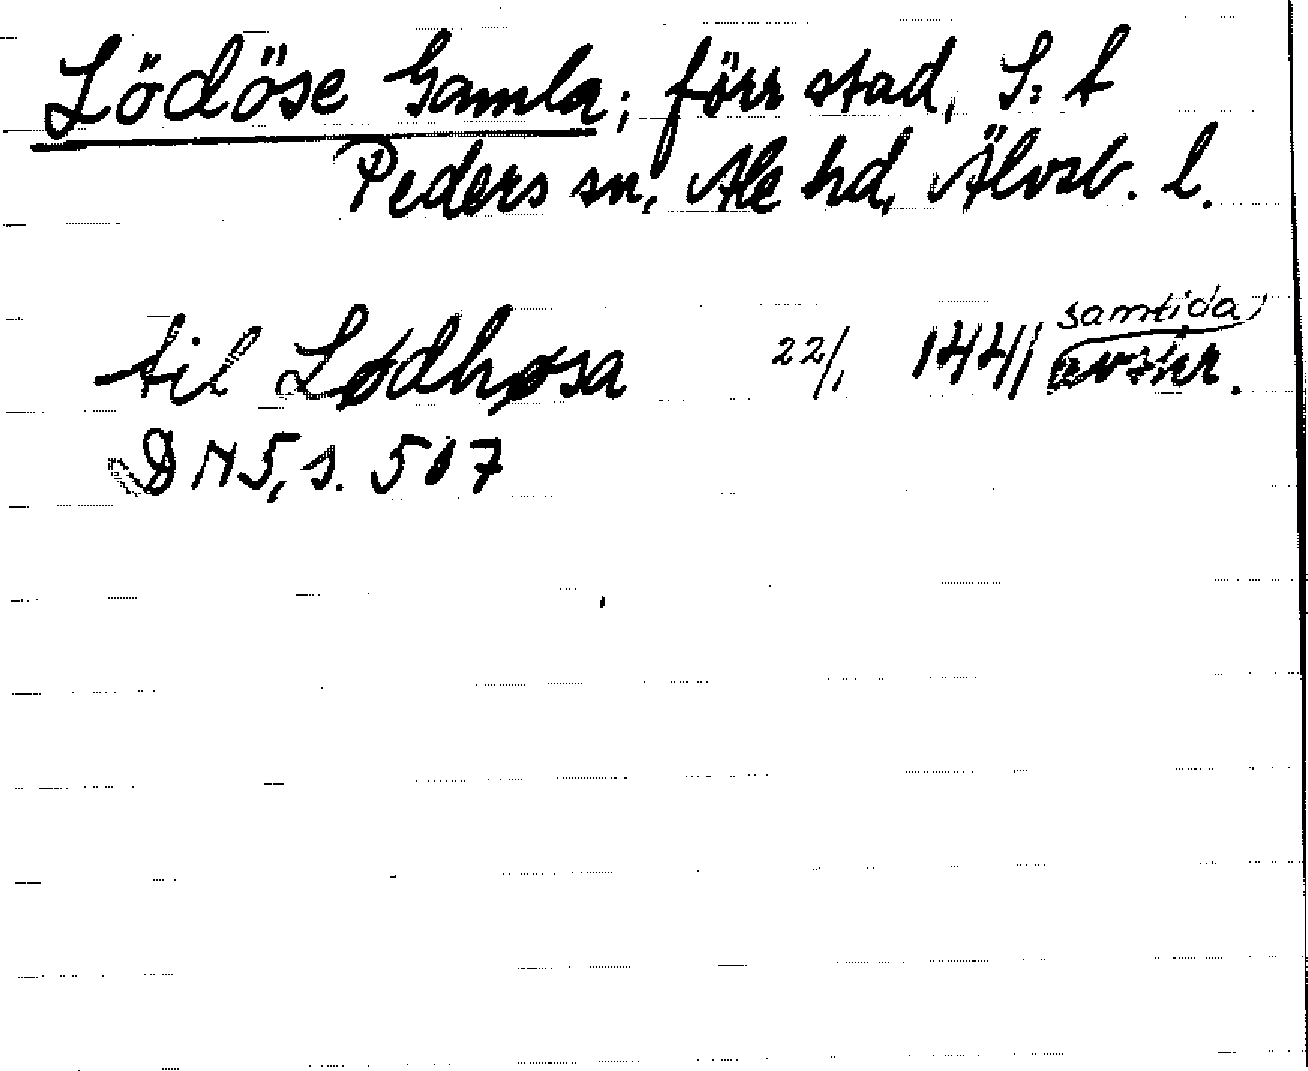 Lödöse Gamla; förr stad, S:t
Peders sn, Ale hd, Älvsb. l.
til Lødhøsa 22/1 1441 samtida avskr.
DN 5, s. 507